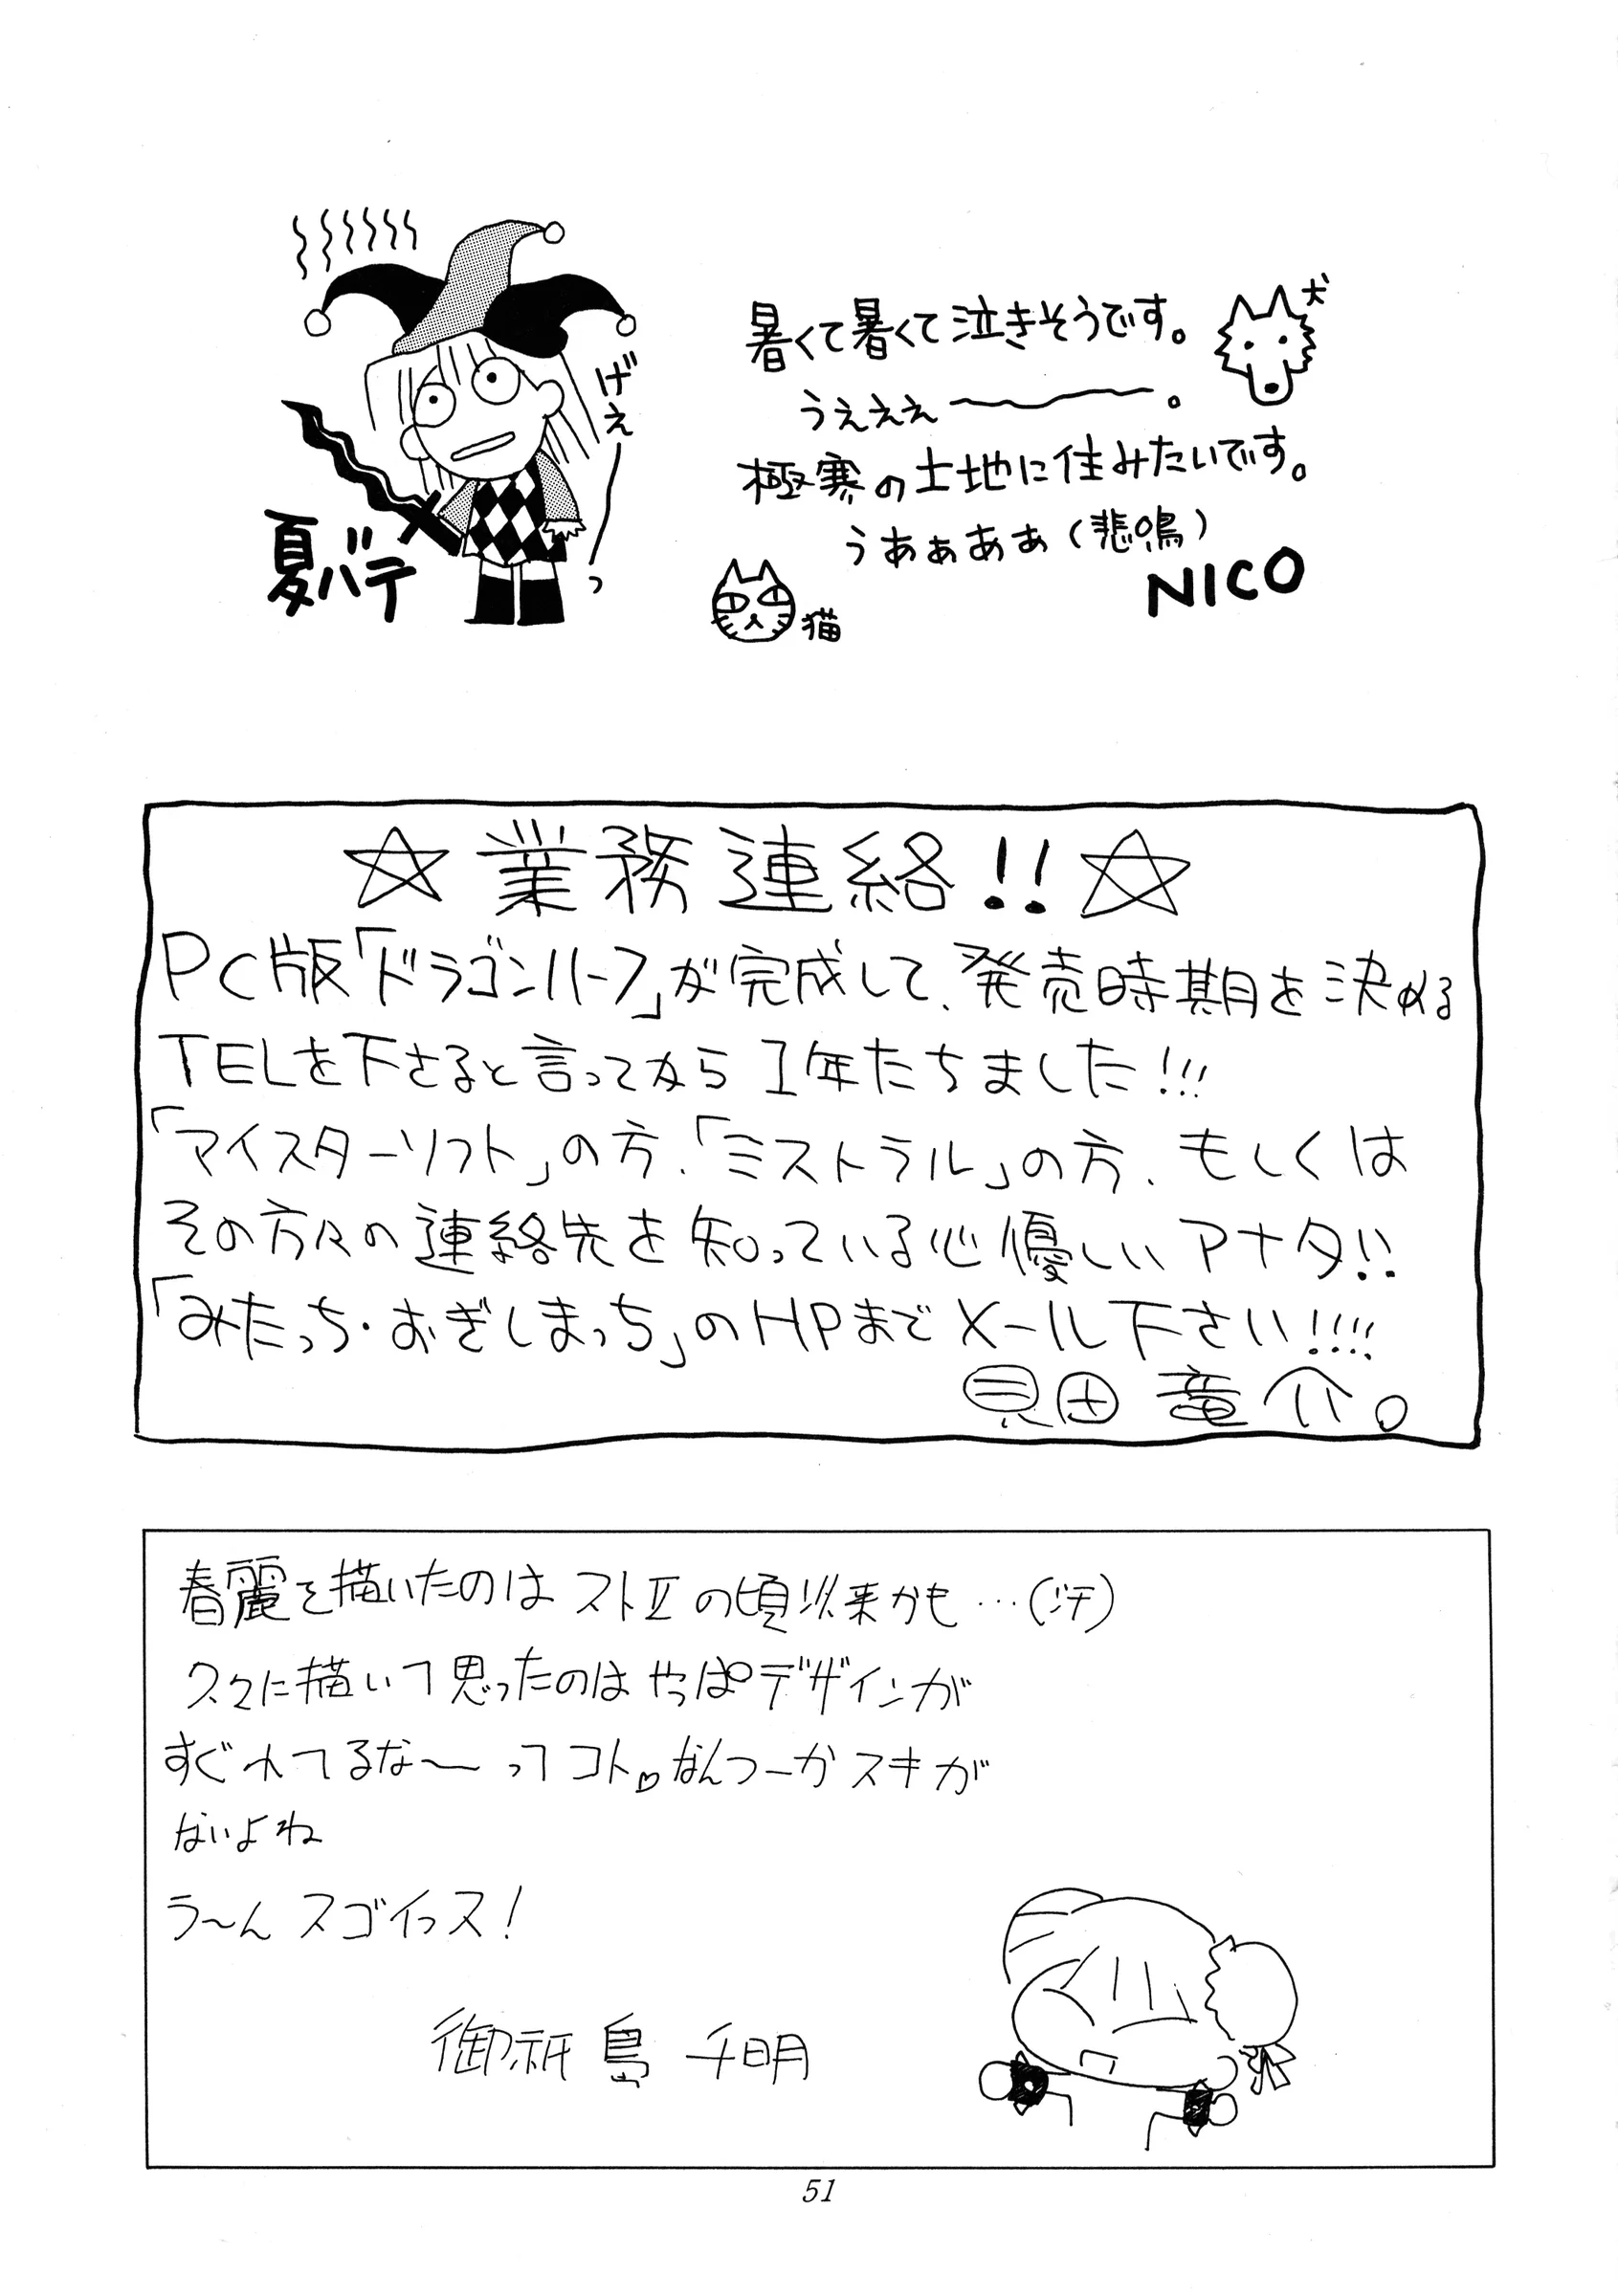 げえーーっ
夏バテ
暑くて暑くて泣きそうです。
犬
うぇぇぇ〜〜。
極寒の土地に住みたいです。
うぁぁぁぁ(悲鳴)
NICO
猫
☆業務連絡!!☆
PC版「ドラゴンハーフ」が完成して、発売時期を決める
TELを下さると言ってから1年たちました!!!
「マイスターソフト」の方、「ミストラル」の方、もしくは
その方々の連絡先を知っている心優しいアナタ!!
「みたっち・おぎしまっち」のHPまでメール下さい!!!!
見田竜介。
春麗を描いたのはストⅡの頃以来かも…(汗)
久々に描いて思ったのはやっぱデザインが
すぐれてるな〜ってコト♡なんつーかスキが
ないよね
う〜んスゴイっス!
御祇島千明
51